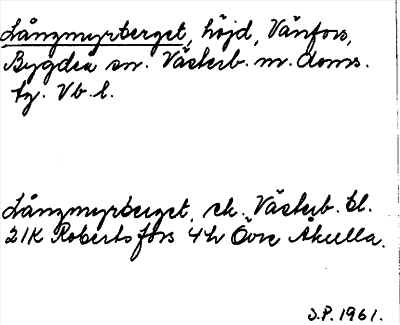 Långmyrberget, höjd, Vänfors,
Bygdeå sn. Västerb. m. doms.
tg. Vb. l.
Långmyrberget, ek. Västerb. bl.
21K Robertsfors 4h Övre Åkulla.
S.P. 1961.